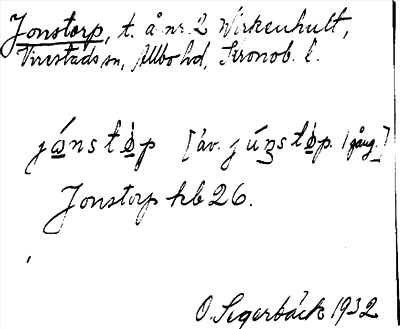 Jonstorp, t. å nr 2 Wirkenhult,
Virestads sn, Allbo hd, Kronob. l.
[äv. 1 gång.]
Jonstorp hb 26.
O. Segerbäck 1932